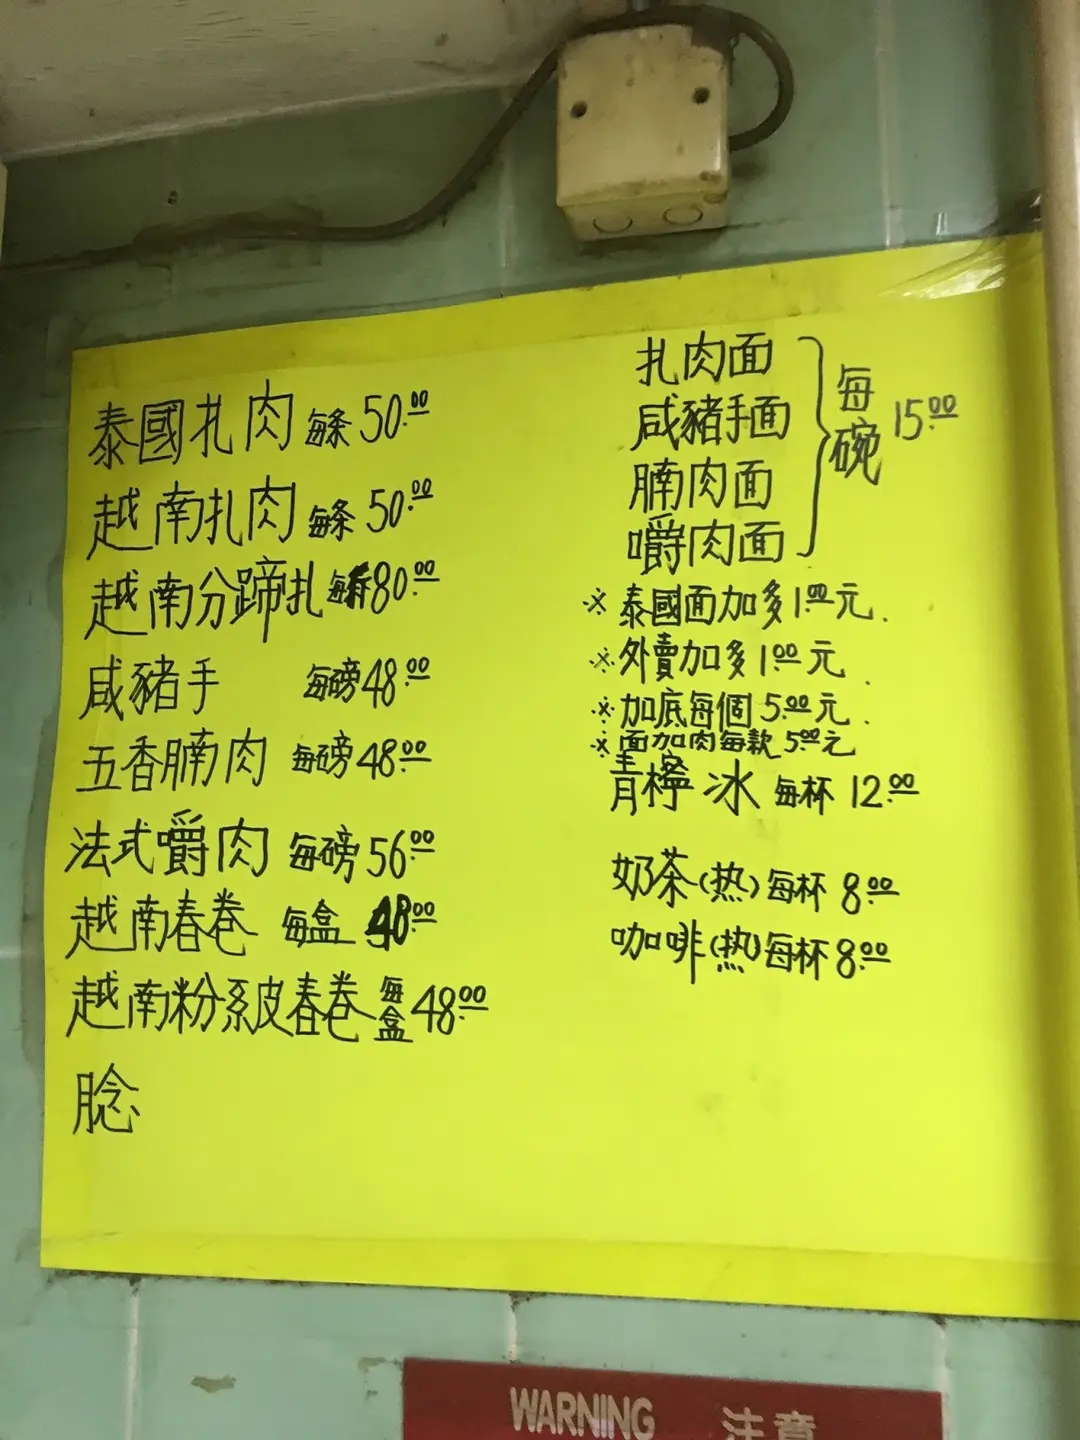 泰國扎肉 每条 50.00
越南扎肉 每条 50.00
越南分蹄扎 每 80.00
咸豬手 每磅 48.00
五香腩肉 每磅 48.00
法式嚼肉 每磅 56.00
越南春卷 每盒 48.00
越南粉絲皮春卷 每盒 48.00
扎肉面
咸豬手面
腩肉面
嚼肉面
每碗 15.00
※ 泰國面加多 1.00 元.
※ 外賣加多 1.00 元.
※ 加底每個 5.00 元.
※ 面加肉每款 5.00 元
青檸冰 每杯 12.00
奶茶(热) 每杯 8.00
咖啡(热) 每杯 8.00
WARNING 注意